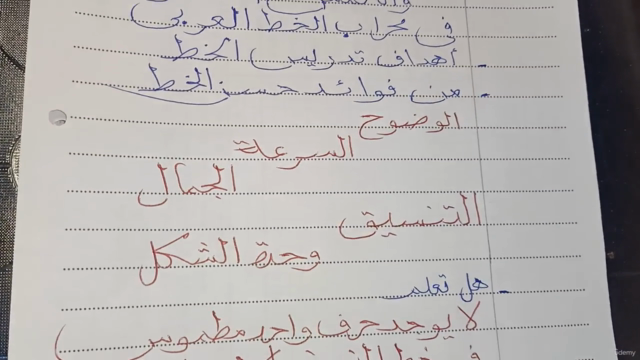 في محراب الخط العربي
- أهداف تدريس الخط
- من فوائد حسن الخط
الوضوح
السرعة
الجمال
التنسيق
وحدة الشكل
- هل تعلم
لا يوجد حرف واحد مطموس